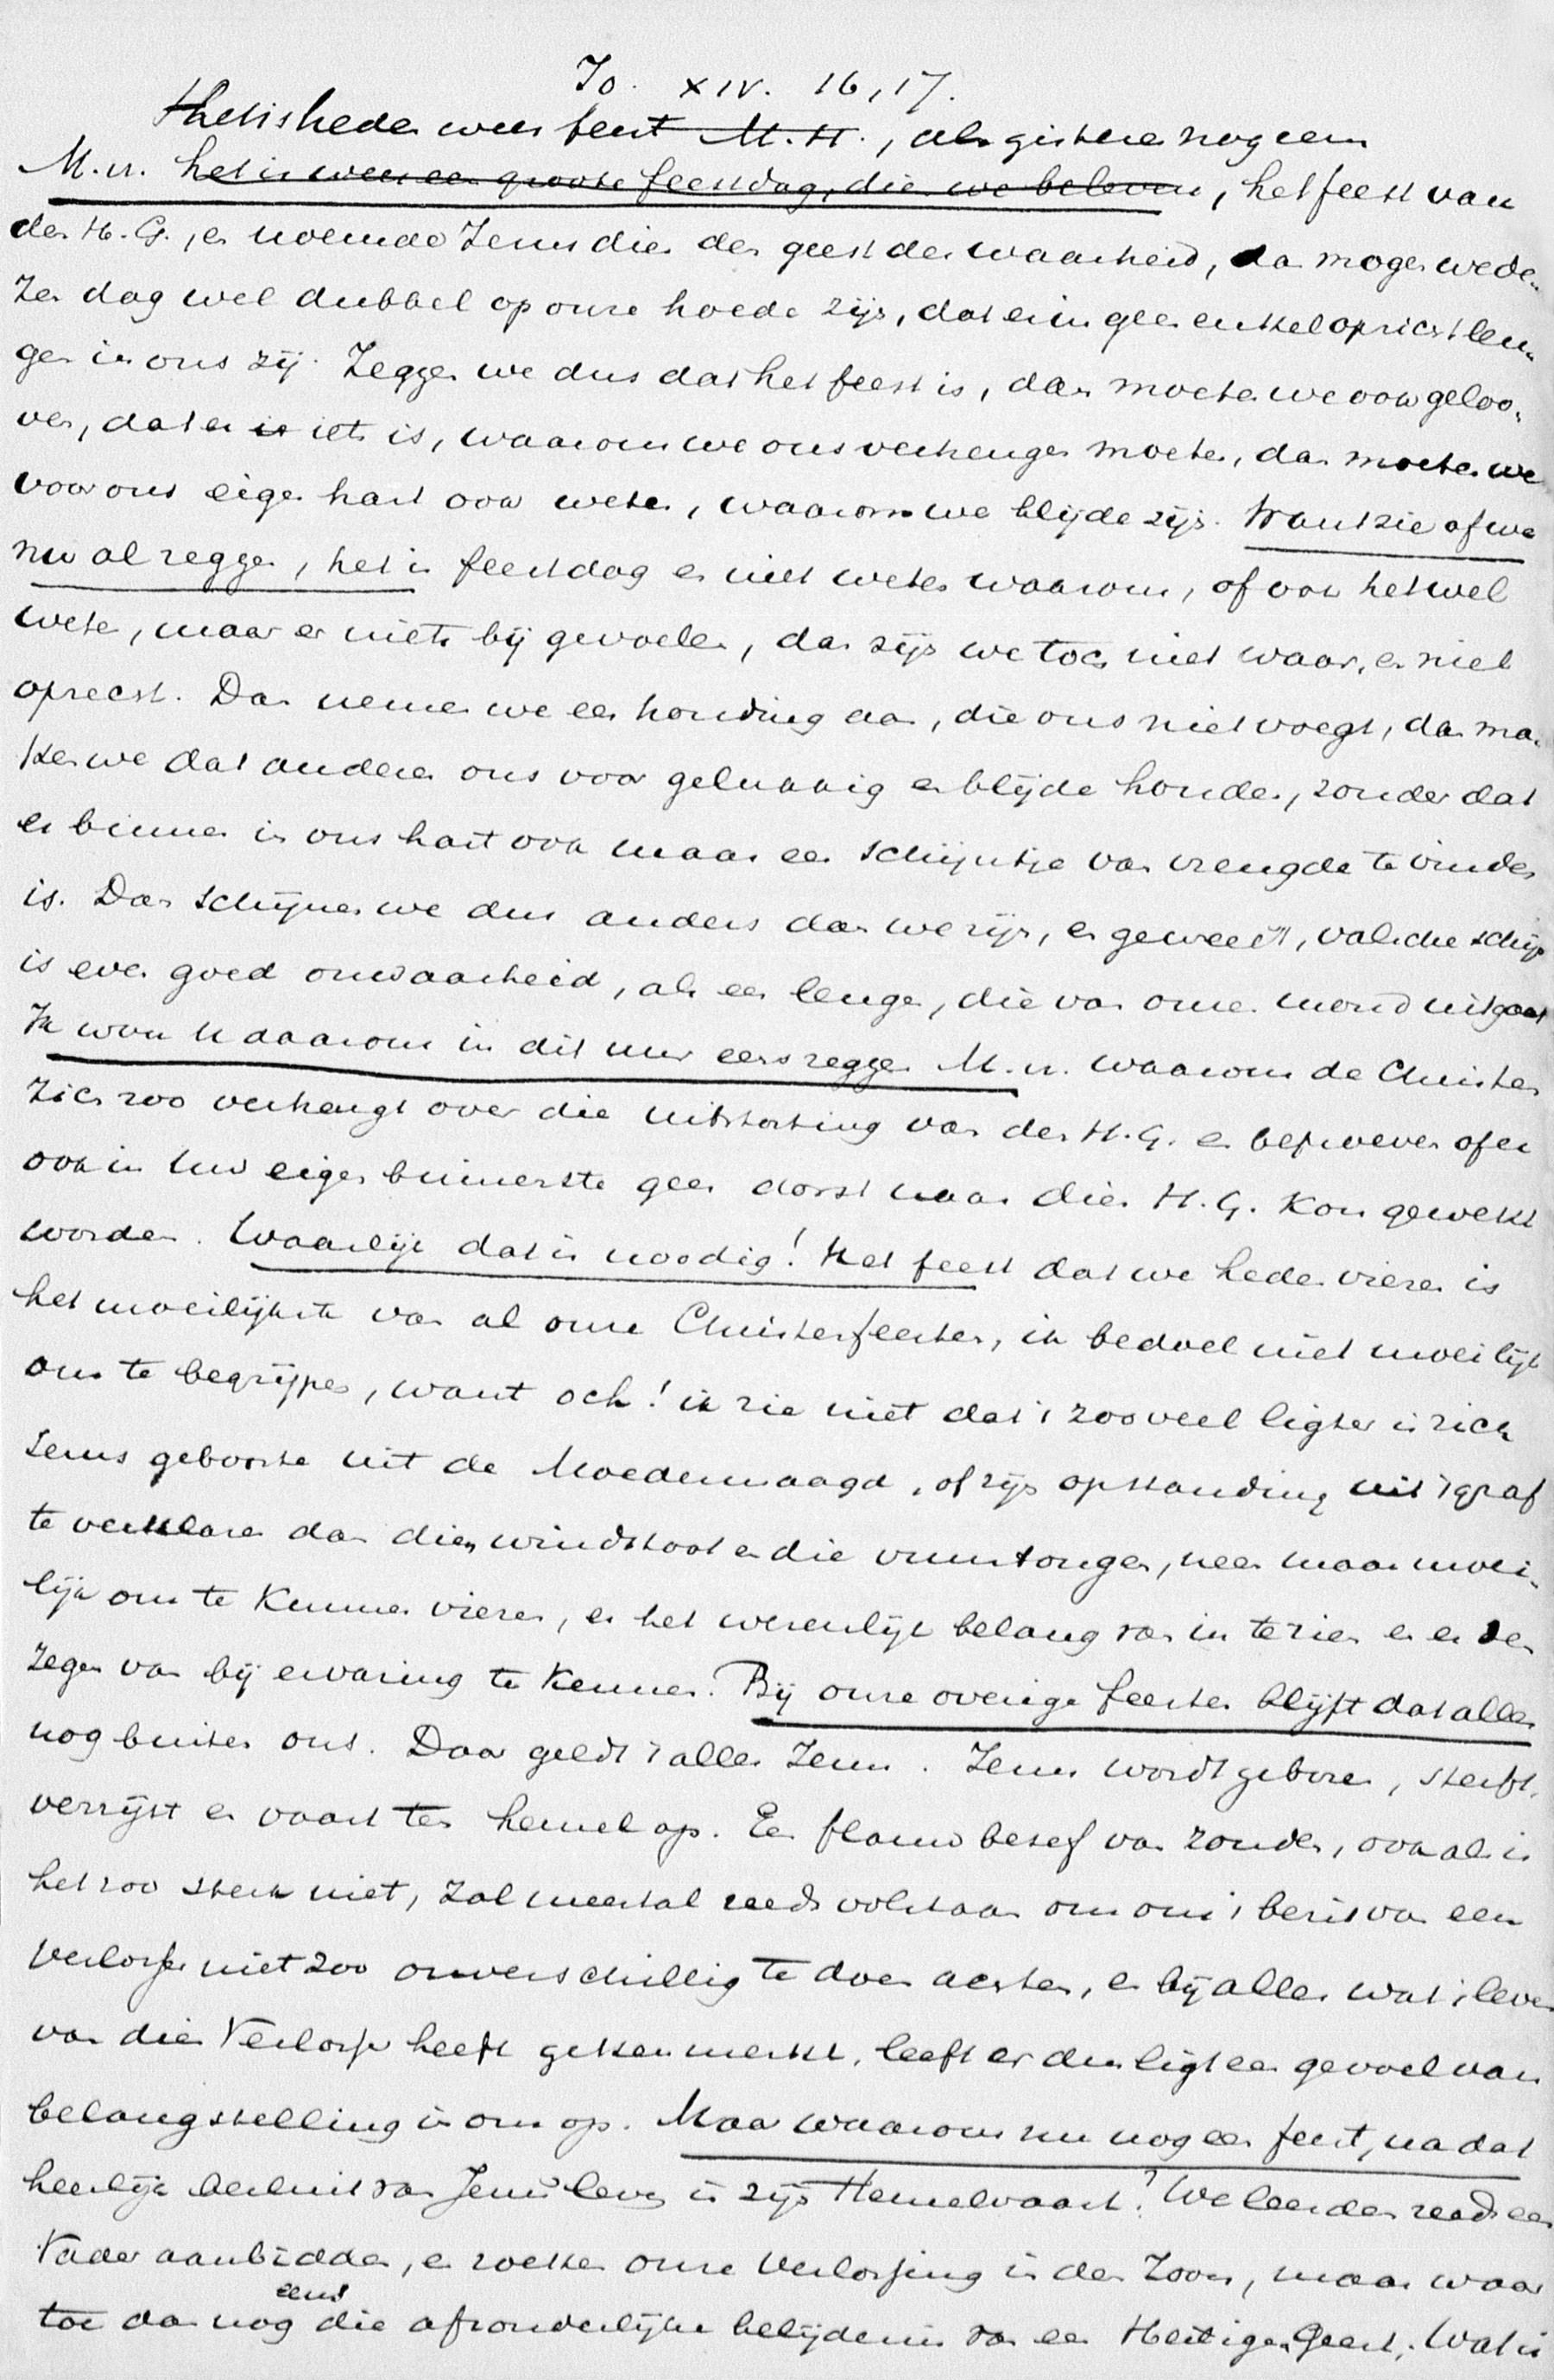 Jo. XIV. 16, 17.
Het is heden weer feest M.H., als gisteren nog een
M.n. het is weer een groote feestdag, die we beleven, het feest van
den H.G., en noemde Jezus dien den geest der waarheid, dan mogen we de-
zen dag wel dubbel op onze hoede zijn, dat er in geen enkel opzicht leu-
gen in ons zij. Zeggen we dus dat het feest is, dan moeten we ook geloo-
ven, dat er is iets is, waarom we ons verheugen moeten, dan moeten we
voor ons eigen hart ook weten, waarom we blijde zijn. Want zie of we
nu al zeggen, het is feestdag en niet weten waarom, of ook het wel
weten, maar er niets bij gevoelen, dan zijn we toch niet waar, en niet
oprecht. Dan nemen we een houding aan, die ons niet voegt, dan ma-
ken we dat anderen ons voor gelukkig en blijde houden, zonder dat
er binnen in ons hart ook maar een schijntje van vreugde te vinden
is. Dan schijnen we dus anders dan we zijn, en geweet, valsche schijn
is even goed onwaarheid, als een leugen, die van onzen mond uitgaat
Ik wou U daarom in dit uur eens zeggen M.n. waarom de Christen
zich zoo verheugt over die uitstorting van den H.G. en beproeven of er
ook in Uw eigen binnenste geen dorst naar dien H.G. kon gewekt
worden. Waarlijk dat is noodig! Het feest dat we heden vieren is
het moeilijkste van al onze Christenfeesten, ik bedoel niet moeilijk
om te begrijpen, want och! ik zie niet dat 't zooveel ligter is zich
Jezus geboorte uit de Moedermaagd, of zijn opstanding uit 't graf
te verklaren dan dien windstoot en die vuurtongen, neen maar moei-
lijk om te kunnen vieren, er het wezenlijk belang van in te zien en er den
zegen van bij ervaring te kennen. Bij onze overige feesten blijft dat alles
nog buiten ons. Daar geldt 't alles Jezus. Jezus wordt geboren, sterft,
verrijst en vaart ten hemel op. Een flauw besef van zonde, ook al is
het zoo sterk niet, zal meestal reeds volstaan om ons 't bezit van een
Verlosser niet zoo onverschillig te doen achten, en bij alles wat 't leven
van dien Verlosser heeft gekenmerkt, leeft er dus ligt een gevoel van
belangstelling in ons op. Maar waarom nu nog een feest, na dat
heerlijk besluit van Jezus' leven in zijn Hemelvaart? We leerden reeds een
Vader aanbidden, en zoeken onze Verlossing in den Zoon, maar waar
toe dan nog eens die afzonderlijke belijdenis van een Heiligen Geest. Wat is